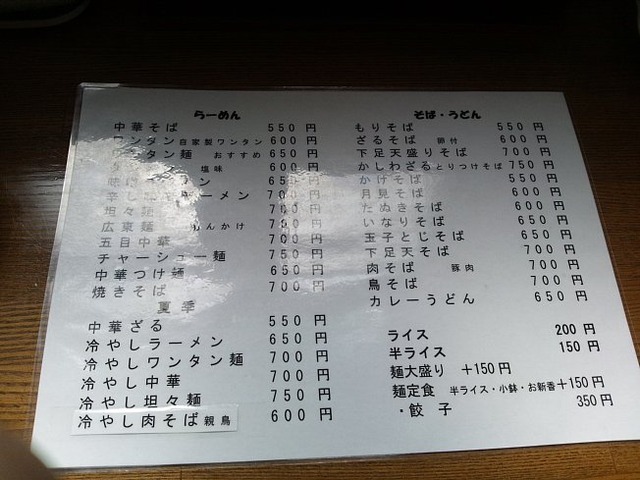 らーめん
中華そば 550 円
ワンタン 自家製ワンタン 600 円
ワンタン麺 おすすめ 650 円
塩味 600 円
650 円
ラーメン 700 円
坦々麺 700 円
広東麺 あんかけ 700 円
五目中華 700 円
チャーシュー麺 750 円
中華つけ麺 650 円
焼きそば 700 円
夏季
中華ざる 550 円
冷やしラーメン 650 円
冷やしワンタン麺 700 円
冷やし中華 700 円
冷やし坦々麺 750 円
冷やし肉そば 親鳥 600 円
そば・うどん
もりそば 550 円
ざるそば 卵付 600 円
下足天盛りそば 700 円
かしわざる とりつけそば 750 円
かけそば 550 円
月見そば 600 円
たぬきそば 600 円
いなりそば 650 円
玉子とじそば 650 円
下足天そば 700 円
肉そば 豚肉 700 円
鳥そば 700 円
カレーうどん 650 円
ライス 200 円
半ライス 150 円
麺大盛り +150円
麺定食 半ライス・小鉢・お新香+150円
・餃 子 350 円